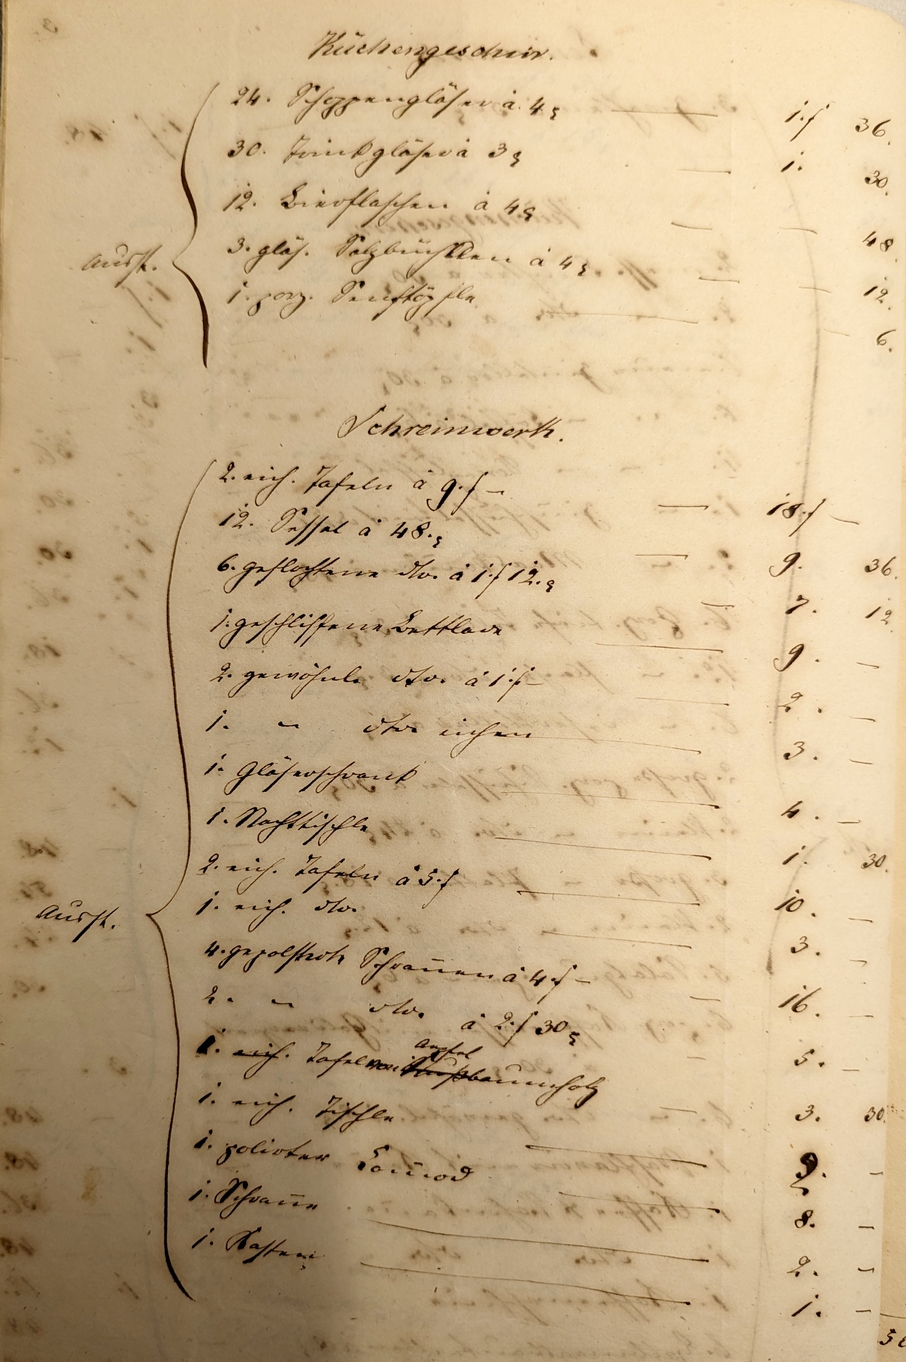 Küchengeschirr.
24. Schoppengläser à 4 x — 1. f 36.
30. Trinkgläser à 3 x — 1. 30.
12. Bierflaschen à 4 x — — 48.
3. gläs. Salzbüchslen à 4 x — — 12.
Ausst.
1. porz. Senftöpfle — — 6.
Schreinwerk.
2. eich. Tafeln à 9. f — — 18. f —
12. Sessel à 48. x — 9. 36.
6. geflochtene dto. à 1 f 12. x — 7. 12
1. geschliffene Bettlade — 9. —
2. gewöhnl. dto. à 1. f — — 2. —
1. " dto eichen — 3. —
1. Gläserschrank — 4. —
1. Nachttischle — 1. 30.
2. eich. Tafeln à 5. f — 10. —
Ausst.
1. eich. dto. — 3. —
4. gepolsterte Schrannen à 4. f — — 16. —
2. " dto. à 2. f 30 x — 5. —
Apfel
1. eich. Tafel von Nußbaumholz — 3. 30.
1. eich. Tischle — 2. —
1. polirter Com̄od — 8. —
1. Schranne — 2. —
1. Kasten — 1. —